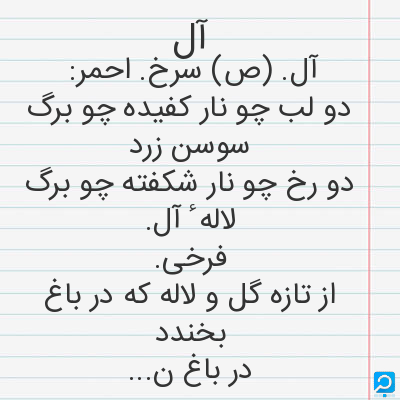 آل
آل. (ص) سرخ. احمر:
دو لب چو نار کفیده چو برگ
سوسن زرد
دو رخ چو نار شکفته چو برگ
لاله ٔ آل.
فرخی.
از تازه گل و لاله که در باغ
بخندد
در باغ ن...